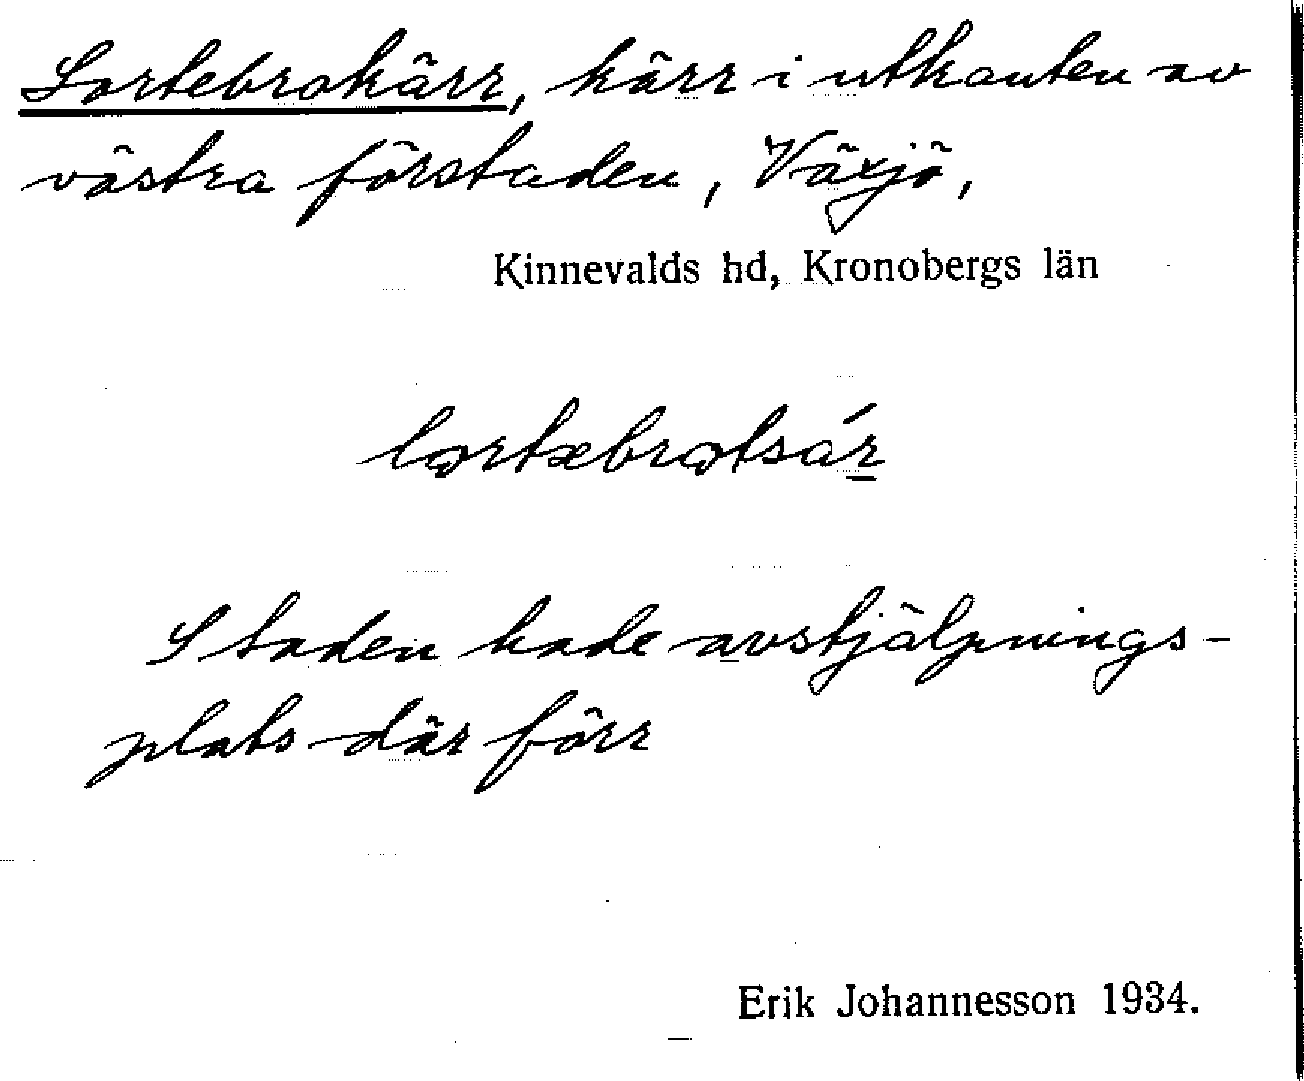 Lortebrokärr, kärr i utkanten av
västra förstaden, Växjö,
Kinnevalds hd, Kronobergs län
Staden hade avstjälpnings-
plats där förr
Erik Johannesson 1934.